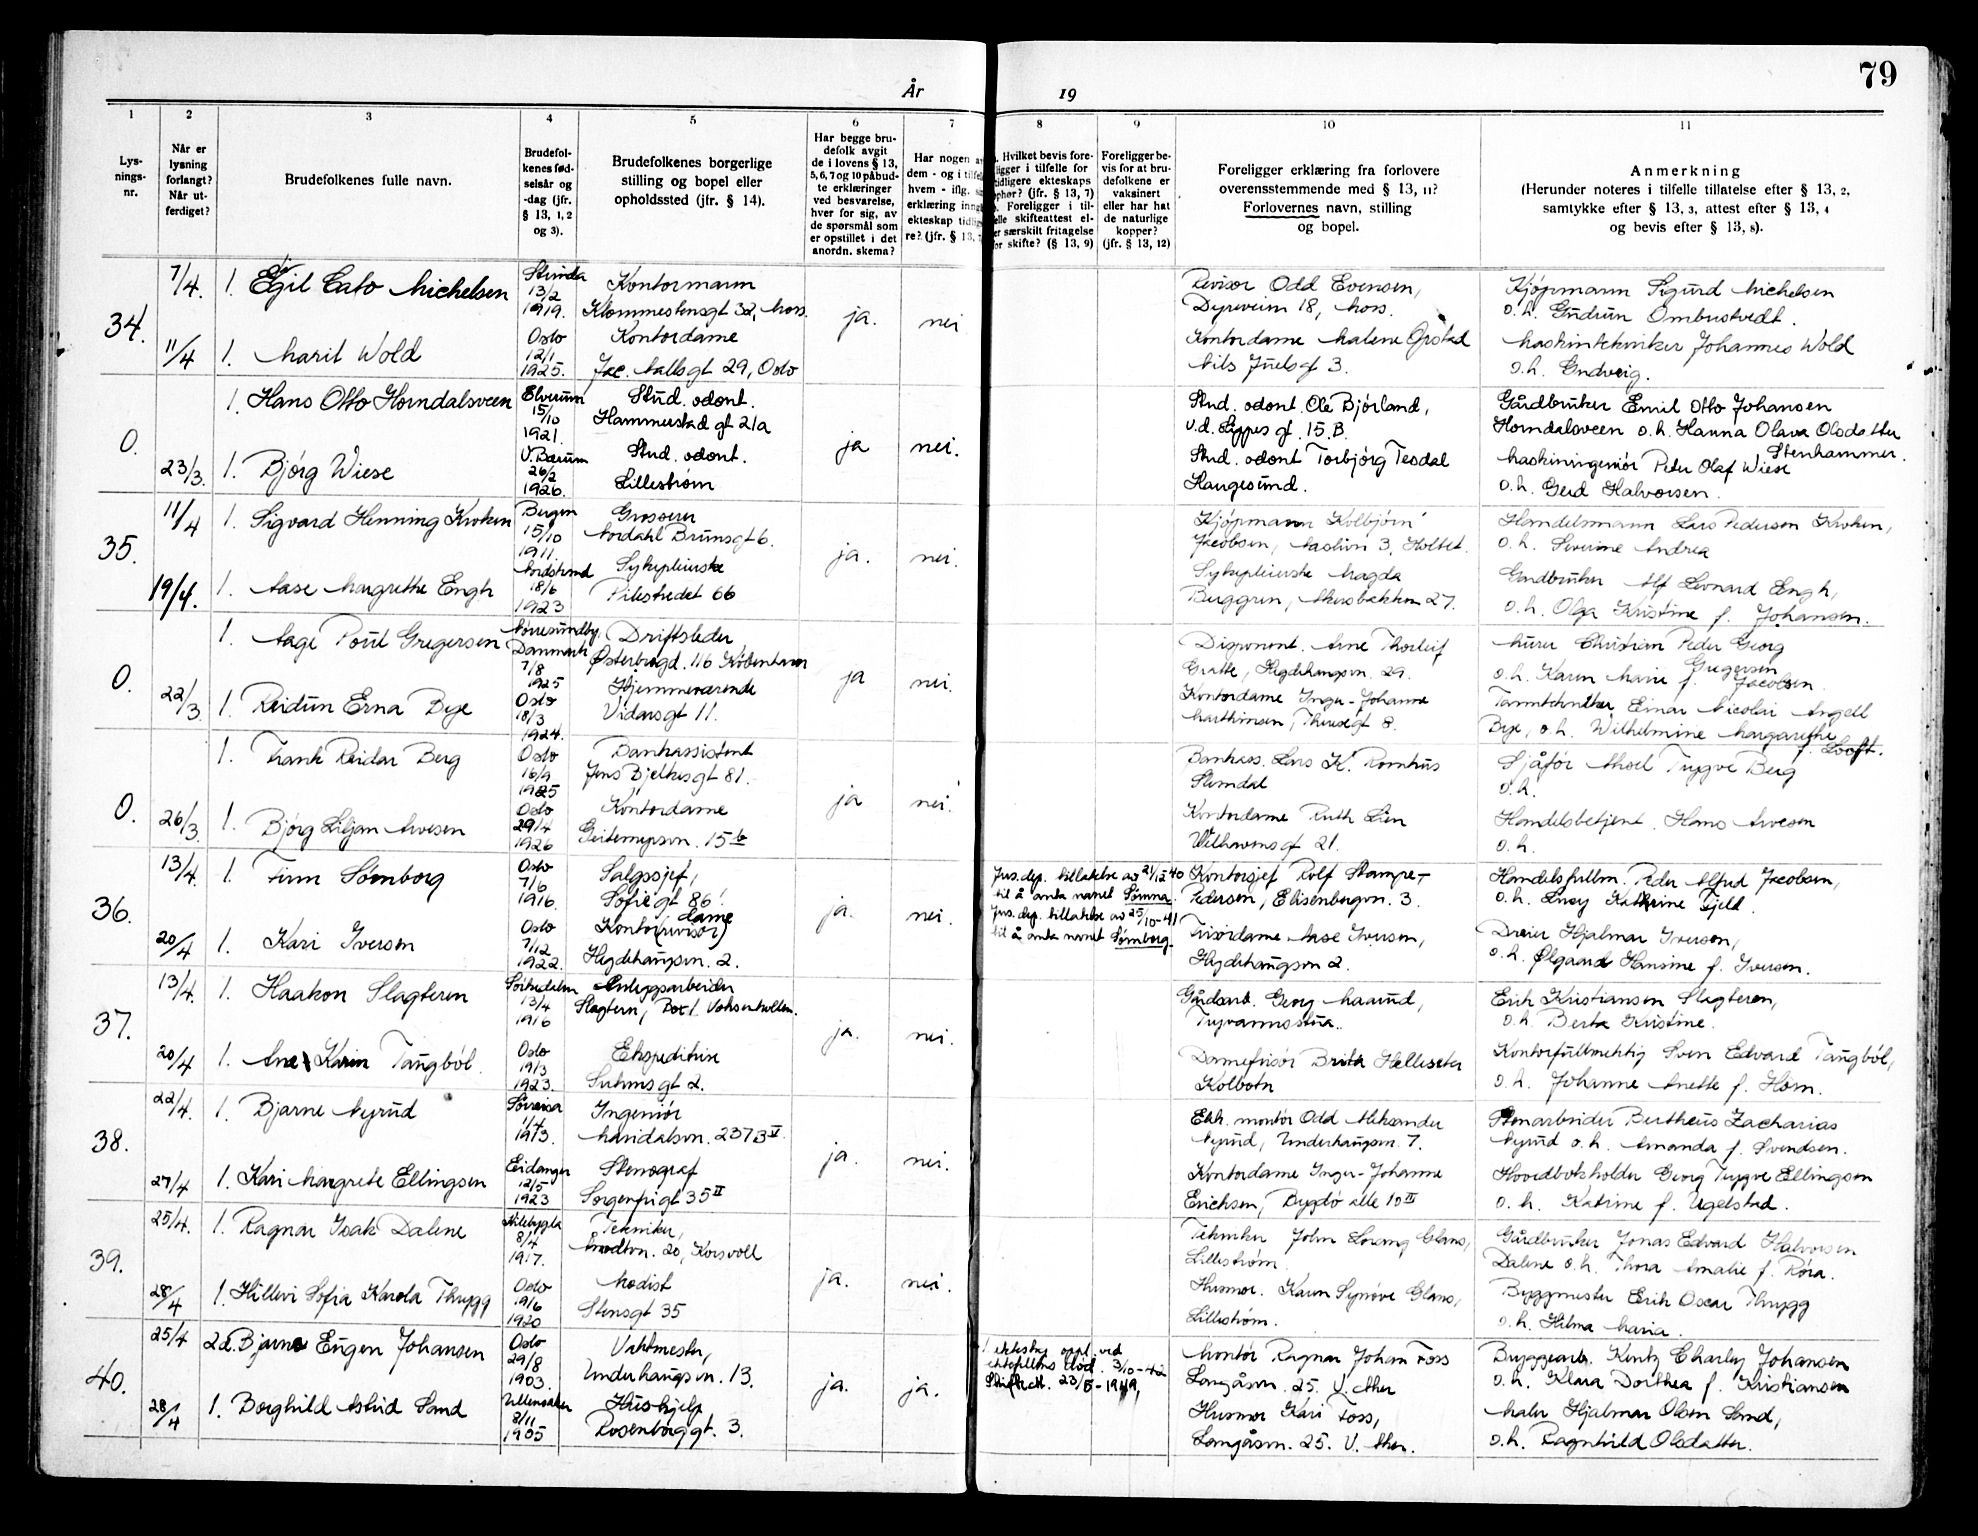 79
År 19
1 2 3 4 5 6 7 8 9 10 11
Lys-
nings-
nr.
Når er
lysning
forlangt?
Når ut-
ferdiget?
Brudefolkenes fulle navn.
Brudefol-
kenes fød-
selsår og
-dag (jfr.
§ 13, 1, 2
og 3).
Brudefolkenes borgerlige
stilling og bopel eller
opholdssted (jfr. § 14).
Har begge bru-
defolk avgit
de i lovens § 13,
5, 6, 7 og 10 påbud-
te erklæringer
ved besvarelse,
hver for sig, av
de spørsmål som
er opstillet i det
anordn. skema?
Har nogen
dem - og i
hvem - iflg.
erklæring
ekteskap
re? (jfr. § 13,
Hvilket bevis fore-
ligger i tilfelle for
tidligere ekteskaps
ophør? (jfr. § 13, 7)
Foreligger i til-
felle skifteattest el-
er særskilt fritagelse
for skifte? (§ 13, 9)
Foreligger be-
vis for at bru-
defolkene er
vaksinert
eller har hat
de naturlige
kopper?
(jfr. § 13, 12)
Foreligger erklæring fra forlovere
overensstemmende med § 13, 11?
Forlovernes navn, stilling
og bopel.
Anmerkning
(Herunder noteres i tilfelle tillatelse efter § 13, 2,
samtykke efter § 13, 3, attest efter § 13, 4
og bevis efter § 13, 8).
34.
7/4.
1. Egil Cato Michelsen
Strinda
13/2
1919.
Kontormann
Klommestensgt 32, Moss.
ja.
nei
Revisor Odd Evensen,
Dyreveien 18, Moss.
Kjøpmann Sigurd Michelsen
o.h. Gudrun Ombustvedt.
11/4
1. Marit Wold
Oslo
12/1
1925.
Kontordame
Jac. Aallsgt 29, Oslo
Kontordame Malene Ørstad
Nils Juelsgt 3.
Maskintekniker Johannes Wold
o.h. Gudveig.
0.
1. Hans Otto Horndalsveen
Elverum
15/10
1921.
Stud. odont.
Hammerstad gt 21a
ja
nei.
Stud. odont. Ole Bjørland,
v.d. Lippes gt. 15.B.
Gårdbruker Emil Otto Johansen
Horndalsveen o.h. Hanna Olava Olsdatter
Stenhammer.
23/3.
1. Bjørg Wiese
V. Bærum
26/2
1926.
Stud. odont.
Lillestrøm
Stud. odont Torbjørg Tesdal
Haugesund.
Maskiningeniør Peter Olaf Wiese
o.h. Gerd Halvorsen.
35.
11/4
1. Sigvard Henning Kroken
Bergen
15/10
1911.
Grosserer
Nordahl Brunsgt 6.
ja.
nei.
Kjøpmann Kolbjørn
Jacobsen, Åaslivn 3, Holtet.
Handelsmann Lars Pedersen Kroken,
o.h. Severine Andrea
19/4.
1. Aase Margrethe Engh
Nordstrand
18/6
1923
Sykepleierske
Pilestredet 66
Sykepleierske Magda
Berggren, Akersbakken 27.
Gardbruker Alf Leonard Engh,
o.h. Olga Kristine f. Johansen.
0.
1. Aage Poul Gregersen
Nørresundby.
Danmark
7/8
1925
Driftsleder
Østerbrogd. 116 København
ja
nei.
Disponent. Arne Thorleif
Gratte, Hegdehaugsvn. 29.
Murer Christian Peder Georg
Gregersen
o.h. Karen Marie f. Jacobsen.
22/3
1. Reidun Erna Bye
Oslo
18/3
1924.
Hjemmeværende
Vidarsgt 11.
Kontordame Inger-Johanne
Marthinsen, Theresegt 8.
Tanntekniker Einar Nicolai Angell
Bye, o.h. Wilhelmine Margarethe
f. Looft.
0.
1. Frank Reidar Berg
Oslo
16/9
1925
Bankassistent
Jens Bjelkesgt 81.
ja
nei.
Bankass. Lars K. Romhus
Slemdal
Sjåfør Aksel Trygve Berg
o.h.
26/3
1. Bjørg Liljan Arvesen
Oslo
29/4
1926
Kontordame
Geitemyrsvn. 15b
Kontordame Ruth Lien
Welhavensgt 21.
Handelsbetjent. Hans Arvesen
o.h.
36.
13/4.
1. Finn Sømborg
Oslo
7/6
1916.
Salgssjef,
Sofiegt 86.
ja.
nei.
Jus.dep. tillatelse av 21/12-40
til å anta navnet Sønna.
Jus.dep. tillatelse av 25/10-41
til å anta navnet Sømborg.
Kontorsjef Rolf Stampe-
Pedersen, Elisenbergvn. 3.
Handelsfullm. Peder Alfred Jacobsen,
o.h. Lucy Kathrine Fjeld.
20/4
1. Kari Iversen
Oslo
7/12
1922.
Kontordame
(revisor)
Hegdehaugsvn. 2.
Frisørdame Aase Iversen,
Hegdehaugsvn 2.
Dreier Hjalmar Iversen,
o.h. Ølgaard Hansine f. Iversen.
37.
13/4.
1. Haakon Slagteren
Sørkedalen
13/4
1916
Anleggsarbeider
Slagtern, Post. Voksenkollen.
ja.
nei.
Gårdsarb. Georg Maarud,
Tryvannsstua.
Erik Kristiansen Slagteren,
o.h. Berta Kristine.
20/4
1. Ane Karin Taugbøl.
Oslo
19/3
1923.
Ekspeditrise
Suhmsgt 2.
Damefrisør Brita Helleseter
Kolbotn
Kontorfullmektig Sven Edvard Taugbøl,
o.h. Johanne Anette f. Horn.
38.
22/4.
1. Bjarne Nyrud
Sørreisa
1/4
1913.
Ingeniør
Maridalsvn. 237 3 II.
ja.
nei.
Elek. montør Odd Aleksander
Nyrud, Underhaugsvn. 7.
Stenarbeider Bertheus Zacharias
Nyrud o.h. Amanda f. Svendsen.
27/4
1. Kari Margrete Ellingsen
Eidanger
12/5
1923
Stenograf
Sorgenfrigt 35 II
Kontordame Inger-Johanne
Erichsen, Bygdø alle 10 II
Hovedbokholder Georg Trygve Ellingsen
o.h. Katrine f. Ugelstad.
39.
25/4.
1. Ragnar Isak Dalene
8/4
1917.
Tekniker,
20, Korsvoll
ja.
nei.
Tekniker John Lorang Glans,
Lillestrøm.
Gårdbruker Jonas Edvard Halvorsen
Dalene o.h. Thora Amalie f. Røra.
28/4
1. Hillevi Sofia Karola Thrygg
Oslo
19/6
1920
Modist
Stensgt 35
Husmor. Karen Synøve Glans,
Lillestrøm.
Byggmester Erik Oscar Thrygg
o.h. Hilma Maria.
40.
25/4
2d. Bjarne Eugen Johansen
Oslo
29/8
1903.
Vaktmester,
Underhaugsvn. 13.
ja.
ja.
1 ekteskap oppl. ved
ektefellens død. 3/10-42
Skifteatt. 23/5-1949,
Montør Ragnar Johan Foss
Langåsvn. 25. V. Aker
Byggearb. Kentz Charley Johansen
o.h. Klara Dorthea f. Kristiansen
28/4
1. Borghild Astrid Sand
Ullensaker
8/11
1905
Hushjelp
Rosenborggt. 3.
Husmor Kari Foss,
Langåsvn. 25. V. Aker.
Maler Hjalmar Olsen Sand,
o.h. Ragnhild Olsdatter.